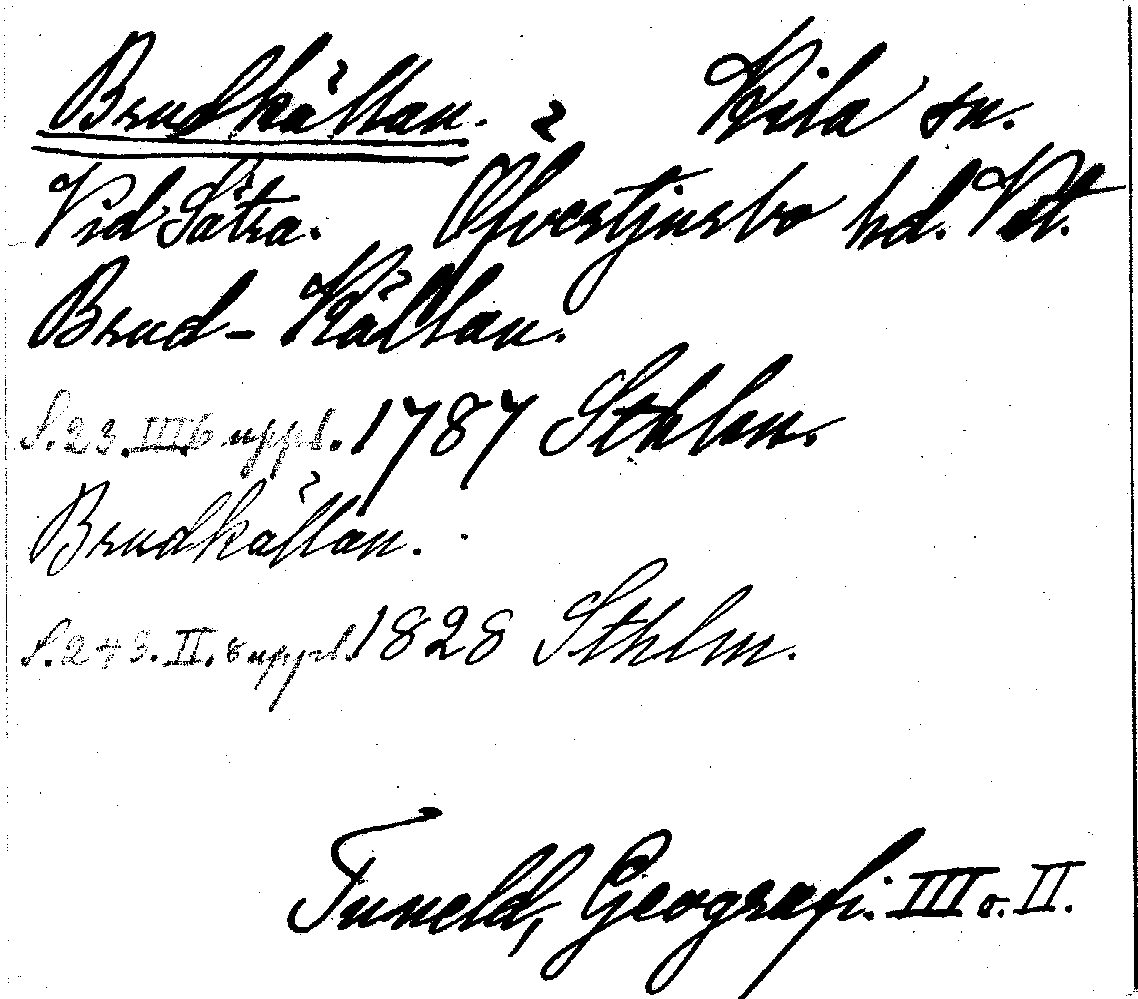 Brudkällan. Kila sn.
Vid Sätra. Öfvertjurbo hd. Vstl.
Brud-Källan.
S. 23. III 6 uppl. 1787 Sthlm.
Brudkällan.
S. 243. II. 8 uppl. 1828 Sthlm.
Tuneld, Geografi. III o. II.